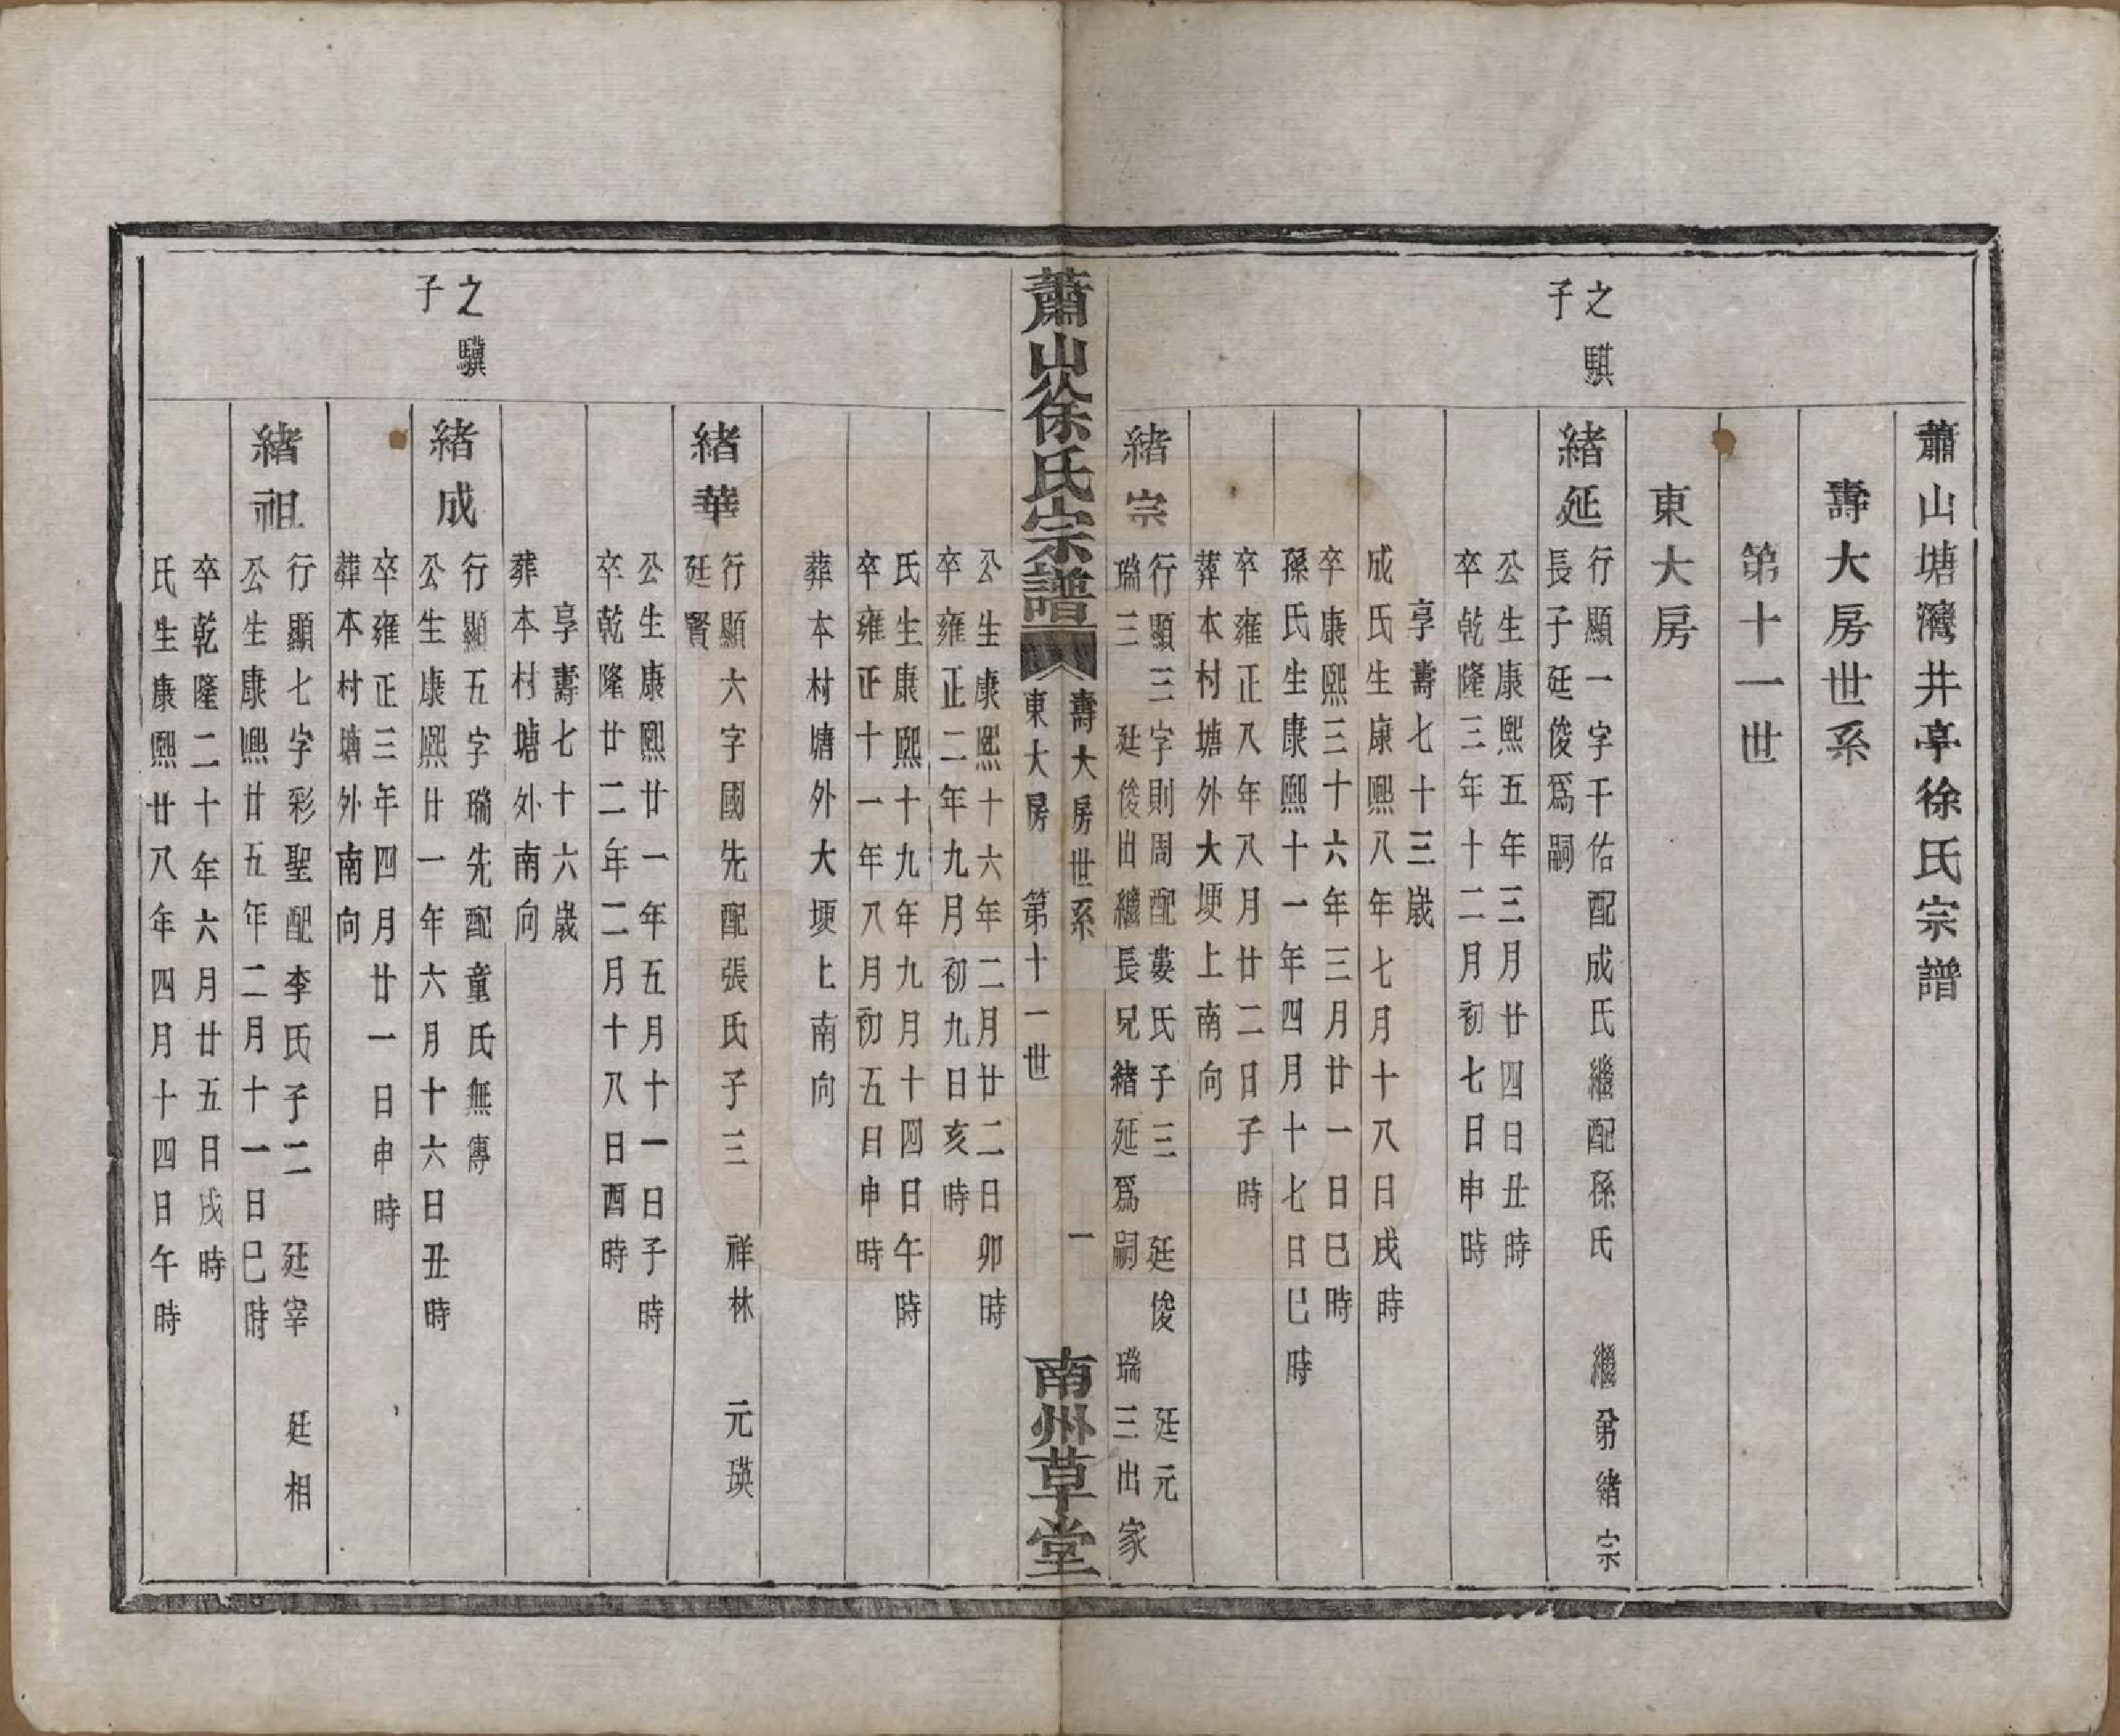 蕭山塘灣井亭徐氏宗譜
壽大房世系
第十一世
東大房
之騏
子
緒延
行顯一字千佑配成氏繼配孫氏 繼弟緒宗
長子廷俊爲嗣
公生康熙五年三月廿四日丑時
卒乾隆三年十二月初七日申時
享壽七十三歲
成氏生康熙八年七月十八日戌時
卒康熙三十六年三月廿一日巳時
孫氏生康熙十一年四月十七日巳時
卒雍正八年八月廿二日子時
葬本村塘外大埂上南向
緒宗
行顯三字則周配婁氏子三 廷俊 廷元
瑞三 廷俊出繼長兄緒延爲嗣 瑞三出家
蕭山徐氏宗譜
壽大房世系 一
東大房 第十一世
南州草堂
公生康熙十六年二月廿二日卯時
卒雍正二年九月初九日亥時
氏生康熙十九年九月十四日午時
卒雍正十一年八月初五日申時
葬本村塘外大埂上南向
緒華
行顯六字國先配張氏子三 祥林 元瑛
廷賢
公生康熙廿一年五月十一日子時
卒乾隆廿二年二月十八日酉時
享壽七十六歲
葬本村塘外南向
之驥
子
緒成
行顯五字瑞先配童氏無傳
公生康熙廿一年六月十六日丑時
卒雍正三年四月廿一日申時
葬本村塘外南向
緒祖
行顯七字彩聖配李氏子二 廷宰 廷相
公生康熙廿五年二月十一日巳時
卒乾隆二十年六月廿五日戌時
氏生康熙廿八年四月十四日午時